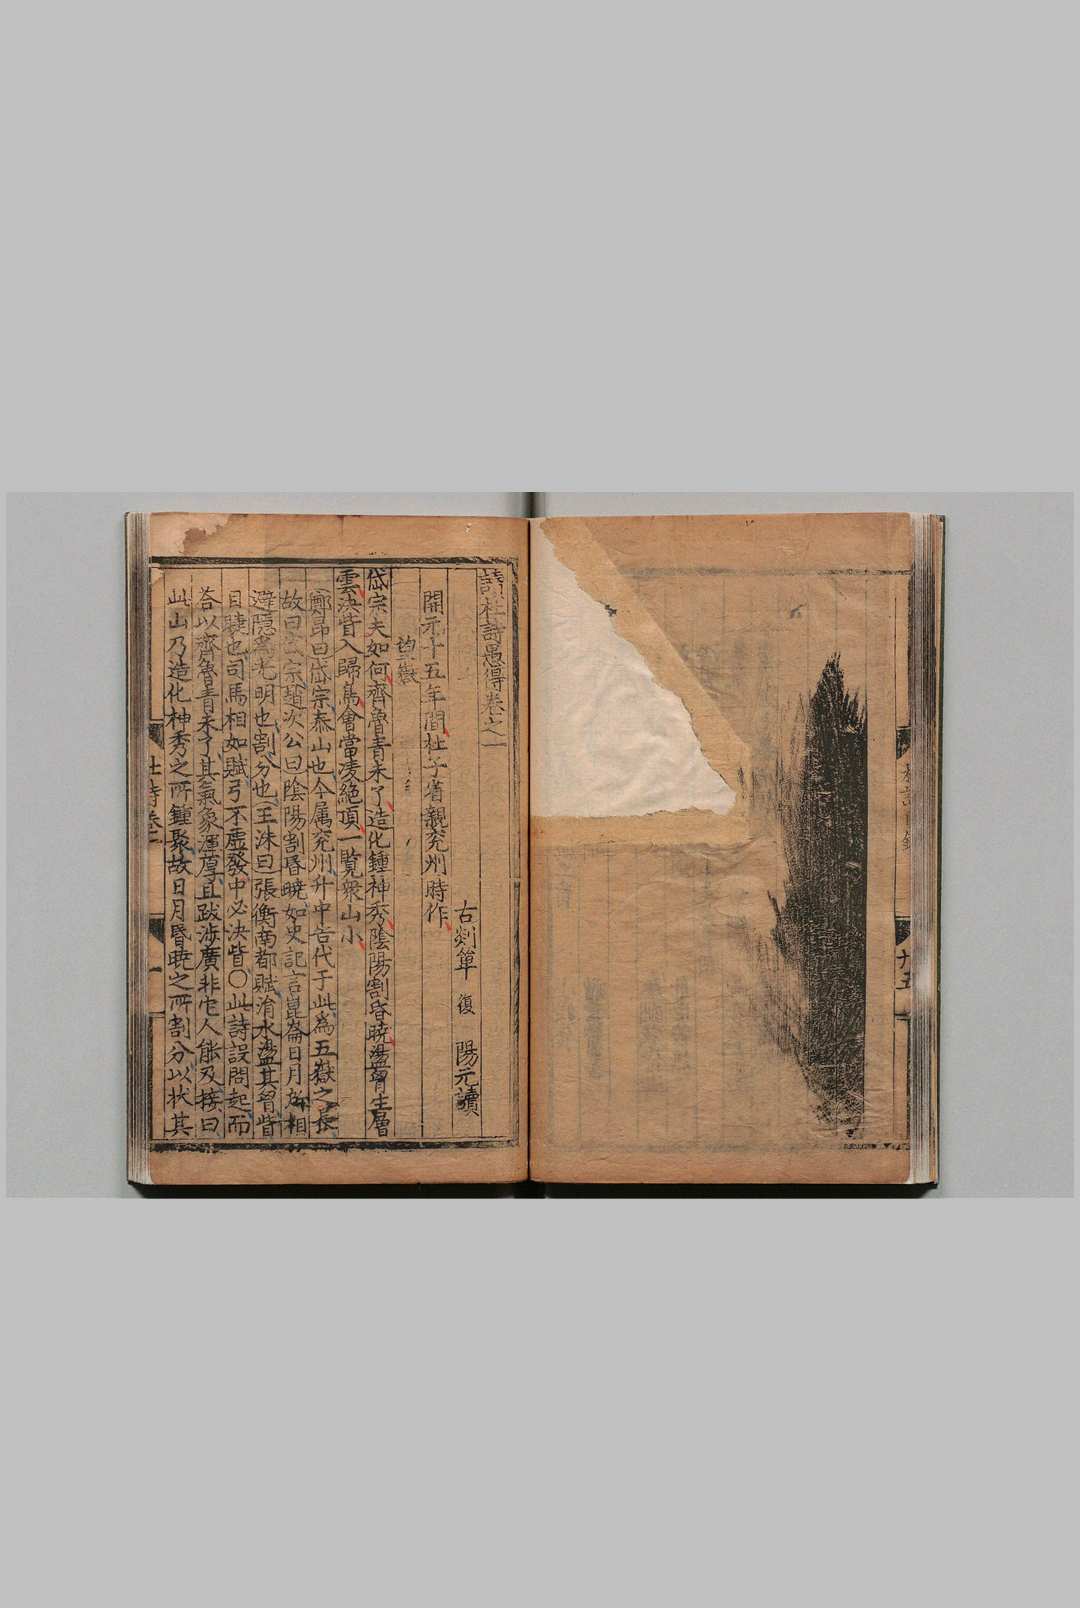 杜詩目錄
十五
讀杜詩愚得卷之一
古剡單 復 陽元讀
開元十五年間杜子省親兗州時作
望嶽
岱宗夫如何齊魯青未了造化鍾神秀陰陽割昏曉盪胷生層
雲決眥入歸鳥會當凌絕頂一覽衆山小
鄭昂曰岱宗泰山也今属兖州升中告代于此爲五嶽之長
故曰岱宗趙次公曰陰陽割昏曉如史記言崑崙日月所相
避隱爲光明也割分也王洙曰張衡南都賦淯水盪其胷眥
目睫也司馬相如賦弓不虚發中必決眥〇此詩設問起而
荅以齊魯青未了其氣象渾厚且跋涉廣非佗人能及接曰
此山乃造化神秀之所鍾聚故日月昏曉之所割分以狀其
杜詩卷一
一